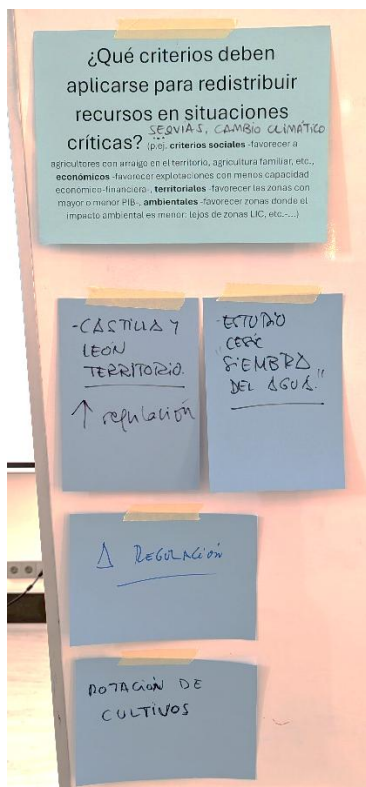 ¿Qué criterios deben
aplicarse para redistribuir
recursos en situaciones
críticas? SEQUIAS, CAMBIO CLIMÁTICO
(p.ej. criterios sociales -favorecer a
agricultores con arraigo en el territorio, agricultura familiar, etc.,
económicos -favorecer explotaciones con menos capacidad
económico-financiera-, territoriales -favorecer las zonas con
mayor o menor PIB-, ambientales -favorecer zonas donde el
impacto ambiental es menor: lejos de zonas LIC, etc.-...)
-CASTILLA Y
LEÓN
TERRITORIO.
↑ regulación
-ESTUDIO
"SIEMBRA
DEL AGUA."
Δ REGULACIÓN
ROTACIÓN DE
CULTIVOS